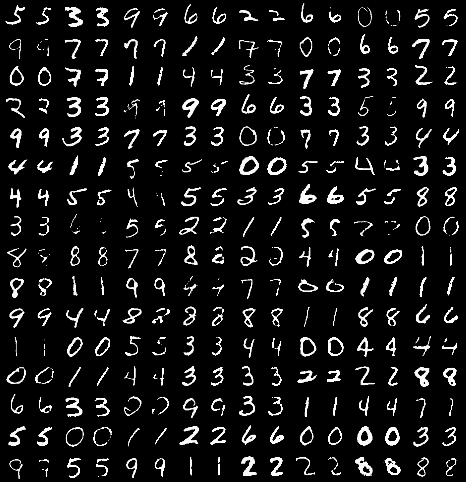 5 5 3 3 9 9 6 6 2 2 6 6 0 0 5 5
9 9 7 7 7 7 1 1 7 7 0 0 6 6 7 7
0 0 7 7 1 1 4 4 3 3 7 7 3 3 2 2
2 2 3 3 9 9 9 9 6 6 3 3 5 5 9 9
9 9 3 3 7 7 3 3 0 0 7 7 3 3 4 4
4 4 1 1 5 5 5 5 0 0 5 5 4 4 3 3
4 4 5 5 4 4 5 5 3 3 6 6 5 5 8 8
3 3 5 5 2 2 1 1 5 5 7 7 0 0
8 8 8 8 7 7 8 8 2 2 4 4 0 0 1 1
8 8 1 1 9 9 4 4 7 7 0 0 1 1 1 1
9 9 4 4 8 8 8 8 8 8 1 1 8 8 6 6
1 1 0 0 5 5 3 3 4 4 0 0 4 4 4 4
0 0 1 1 4 4 3 3 3 3 2 2 2 2 8 8
6 6 3 3 0 0 9 9 3 3 1 1 4 4 7 7
5 5 0 0 1 1 2 2 6 6 0 0 0 0 3 3
9 9 5 5 9 9 1 1 2 2 2 2 8 8 8 8